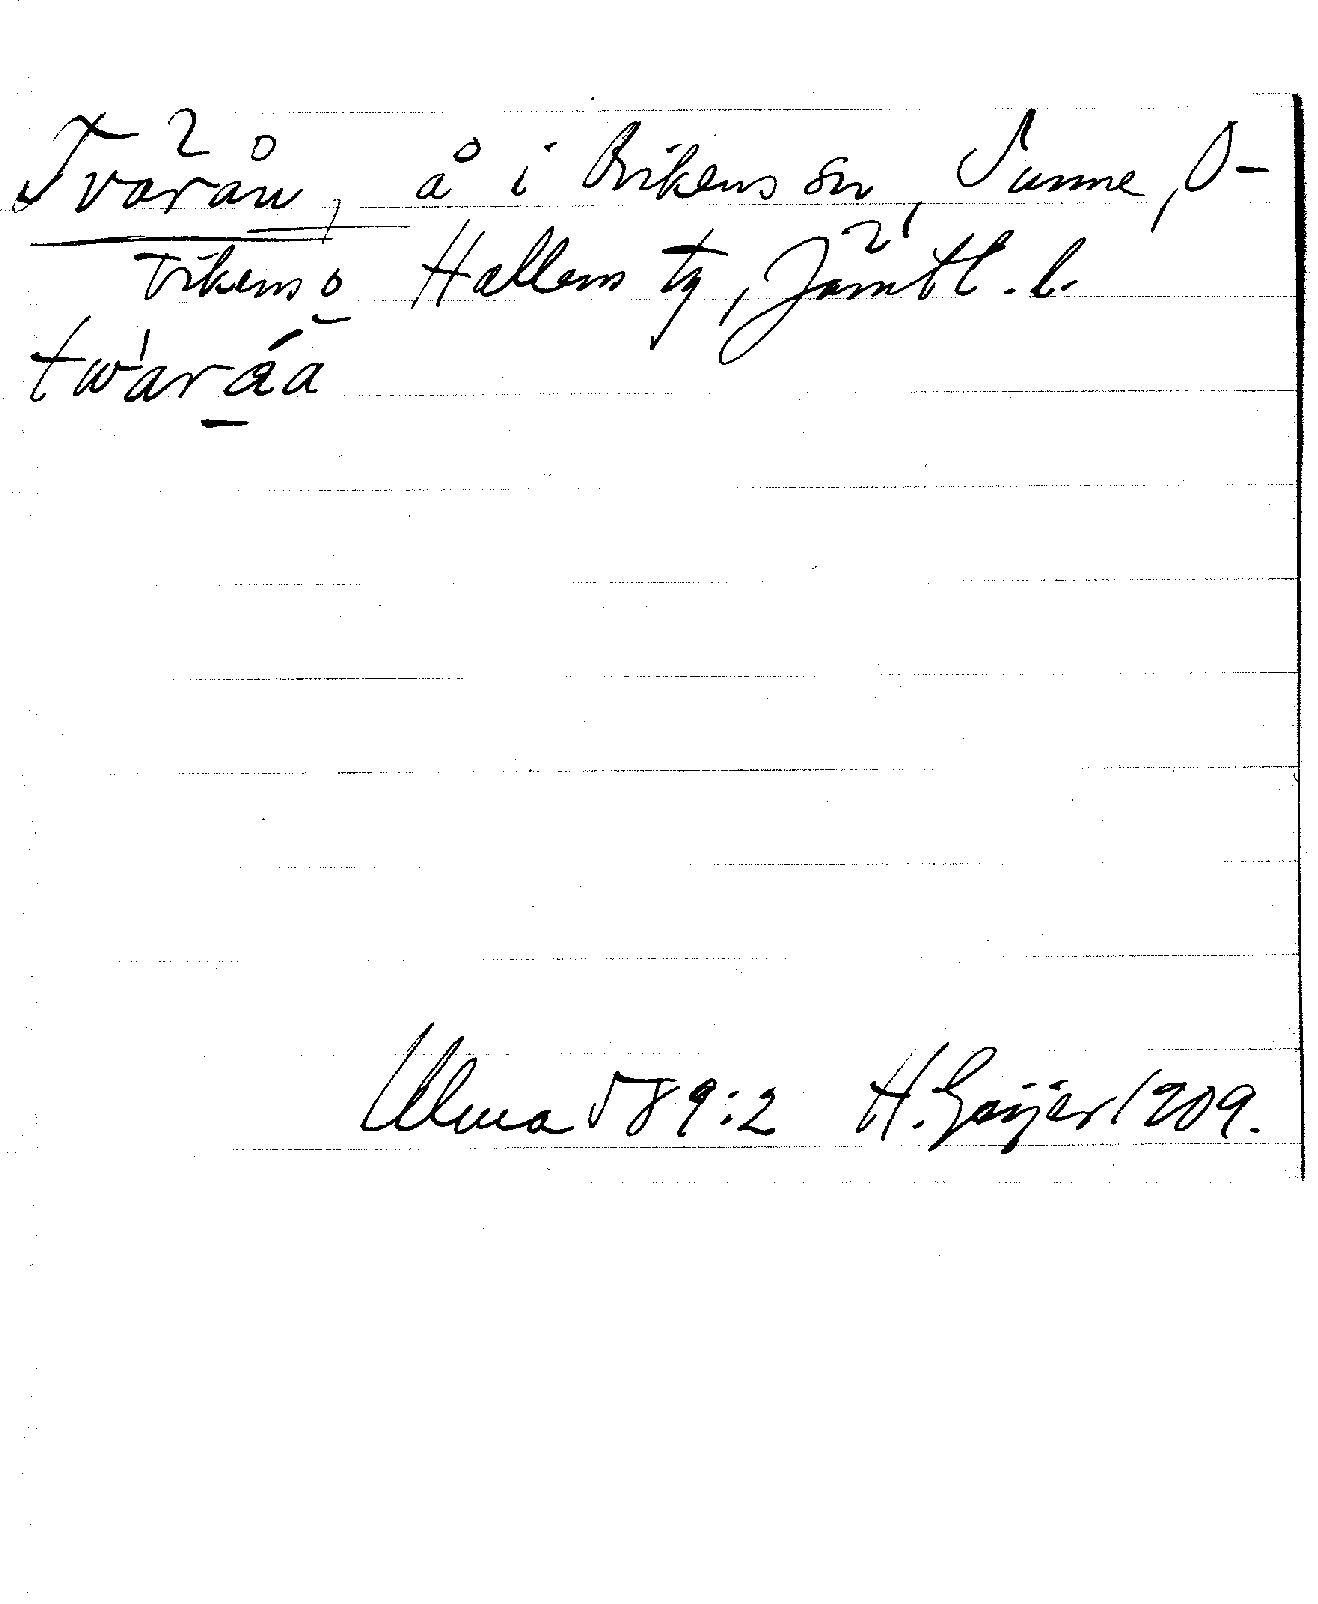 Tvärån, å i Ovikens sn, Sunne, O-
vikens o Hallens tg, Jämtl. l.
twaråa
Ulma 589:2 H. Geijer 1909.